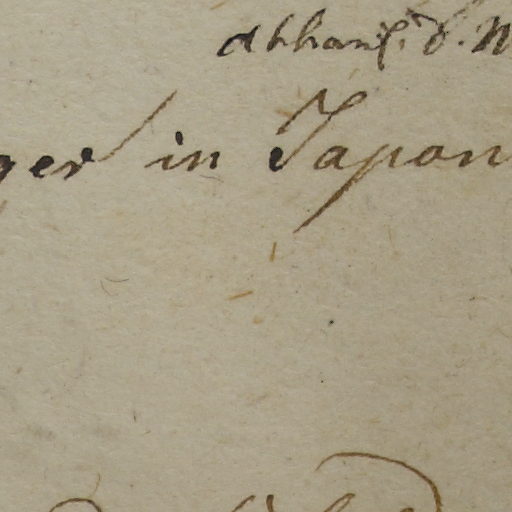 abhandl. d. M
ger in Japan